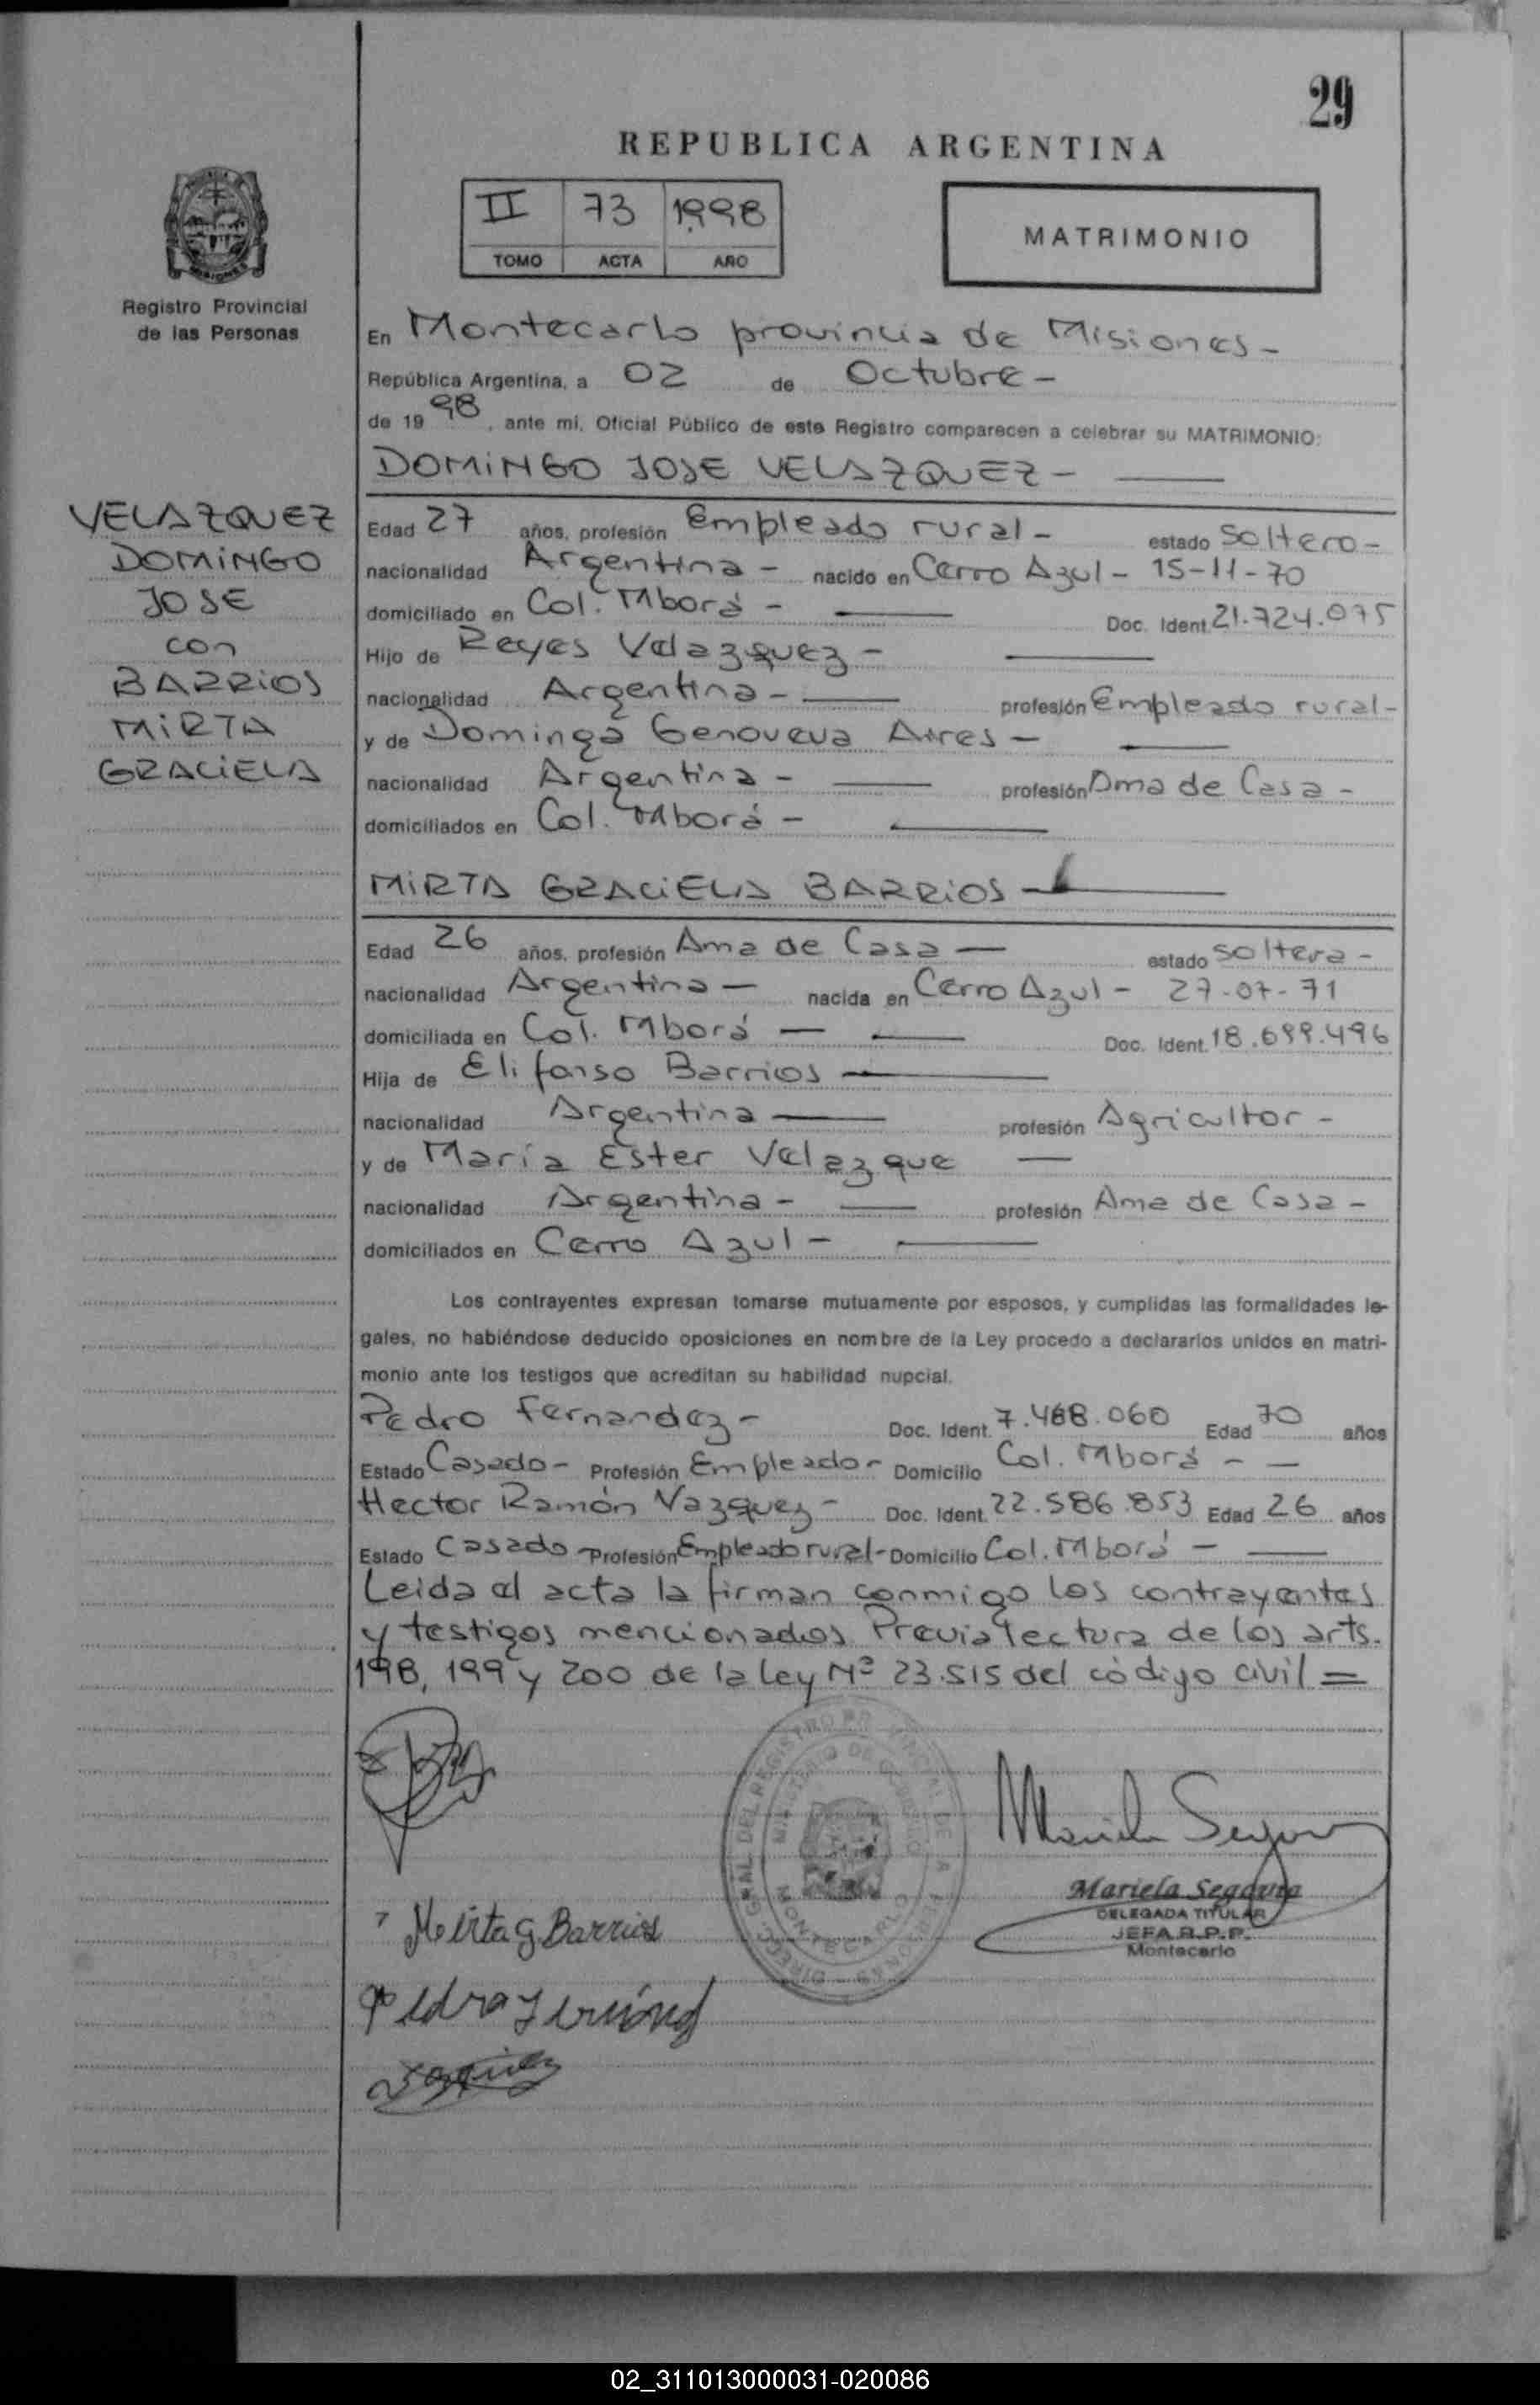 29
REPUBLICA ARGENTINA
II 73 1998
TOMO ACTA AÑO
MATRIMONIO
Registro Provincial
de las Personas
En Montecarlo provincia de Misiones -
República Argentina, a 02 de Octubre -
de 1998, ante mi, Oficial Público de este Registro comparecen a celebrar su MATRIMONIO:
DOMINGO JOSE VELAZQUEZ -
VELAZQUEZ
DOMINGO
JOSE
con
BARRIOS
MIRTA
GRACIELA
Edad 27 años, profesión Empleado rural - estado soltero -
nacionalidad Argentina - nacido en Cerro Azul - 15-11-70
domiciliado en Col. Mborá - Doc. Ident. 21.724.075
Hijo de Reyes Velazquez -
nacionalidad Argentina - profesión Empleado rural -
y de Dominga Genoveva Aires -
nacionalidad Argentina - profesión Ama de Casa -
domiciliados en Col. Mborá -
MIRTA GRACIELA BARRIOS -
Edad 26 años, profesión Ama de Casa - estado soltera -
nacionalidad Argentina - nacida en Cerro Azul - 27-07-71
domiciliada en Col. Mborá - Doc. Ident. 18.699.496
Hija de Elifonso Barrios -
nacionalidad Argentina - profesión Agricultor -
y de María Ester Velazque -
nacionalidad Argentina - profesión Ama de Casa -
domiciliados en Cerro Azul -
Los contrayentes expresan tomarse mutuamente por esposos, y cumplidas las formalidades le-
gales, no habiéndose deducido oposiciones en nombre de la Ley procedo a declararlos unidos en matri-
monio ante los testigos que acreditan su habilidad nupcial.
Pedro Fernandez - Doc. Ident. 7.488.060 Edad 70 años
Estado Casado - Profesión Empleador - Domicilio Col. Mborá -
Hector Ramón Vazquez - Doc. Ident. 22.586.853 Edad 26 años
Estado Casado - Profesión Empleado rural - Domicilio Col. Mborá -
Leida el acta la firman conmigo los contrayentes
y testigos mencionados Previa lectura de los arts.
198, 199 y 200 de la Ley Nº 23.515 del código civil =
Mariela Segovia
Mariela Segovia
DELEGADA TITULAR
JEFA R.P.P.
Montecarlo
Mirta G Barrios
MONTECARLO
02_311013000031-020086